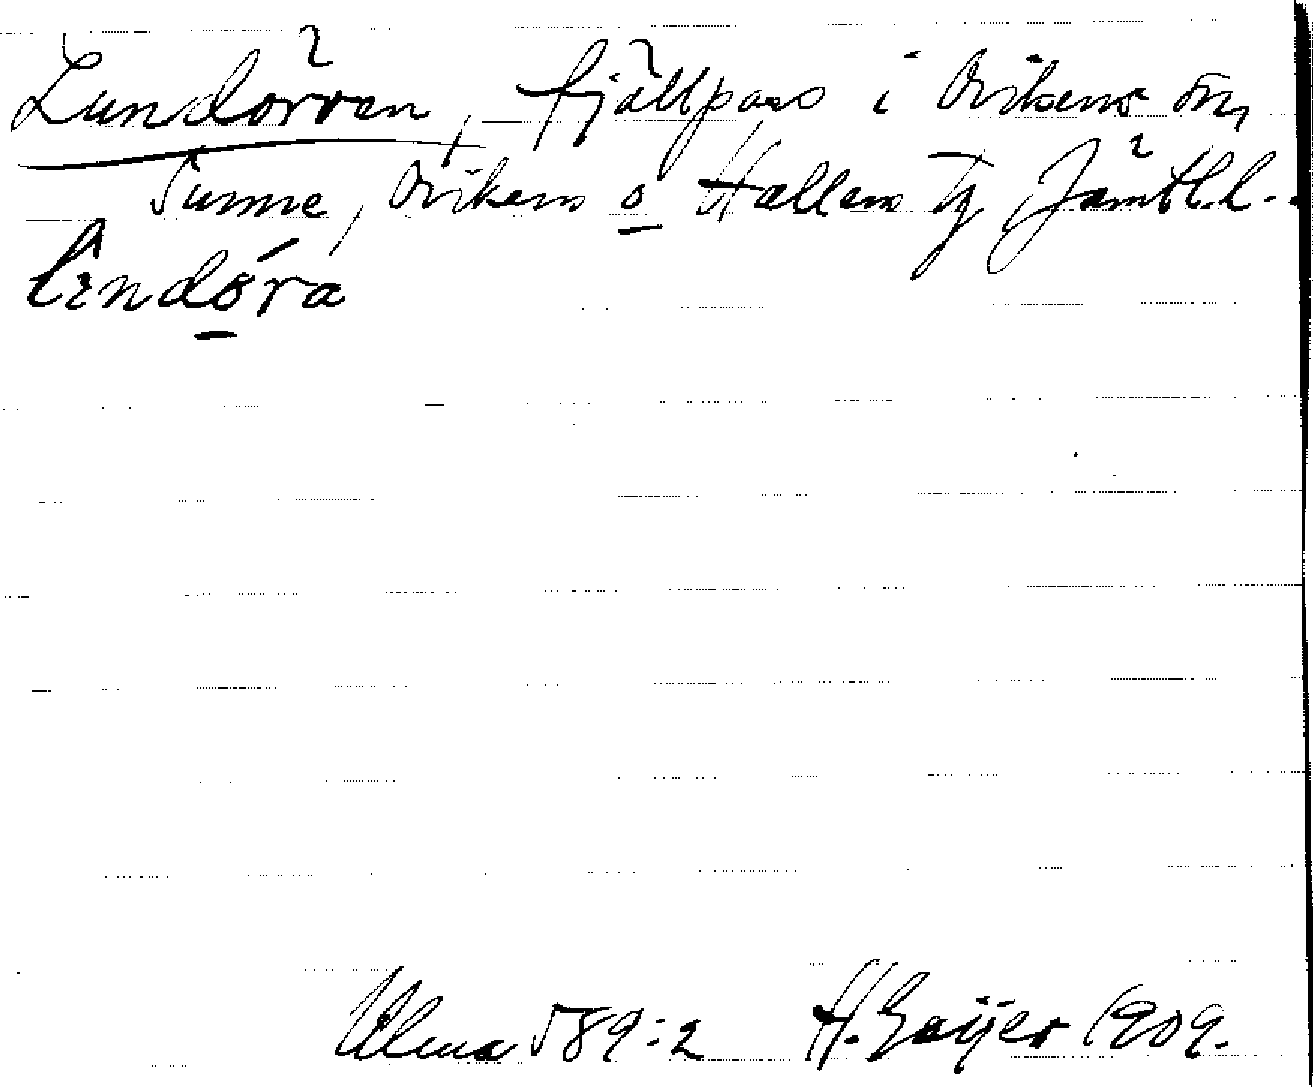 Lundörren, fjällpass i Ovikens sn,
Sunne, Ovikens o Hallens tg Jämtl. l.
Ulma 589:2 H. Geijer 1909.